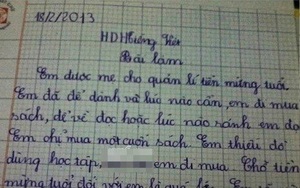 18/2/2013
HDHướng Viết
Bài làm
Em được mẹ cho quản lí tiền mừng tuổi
Em đã để dành và lúc nào cần, em đi mua
sách, để về đọc hoặc lúc nào rảnh em đọc
Em chỉ mua một cuốn sách. Em thiếu đồ
dùng học tập, em đi mua. Chơ tiền
mừng tuổi đối với em là quá